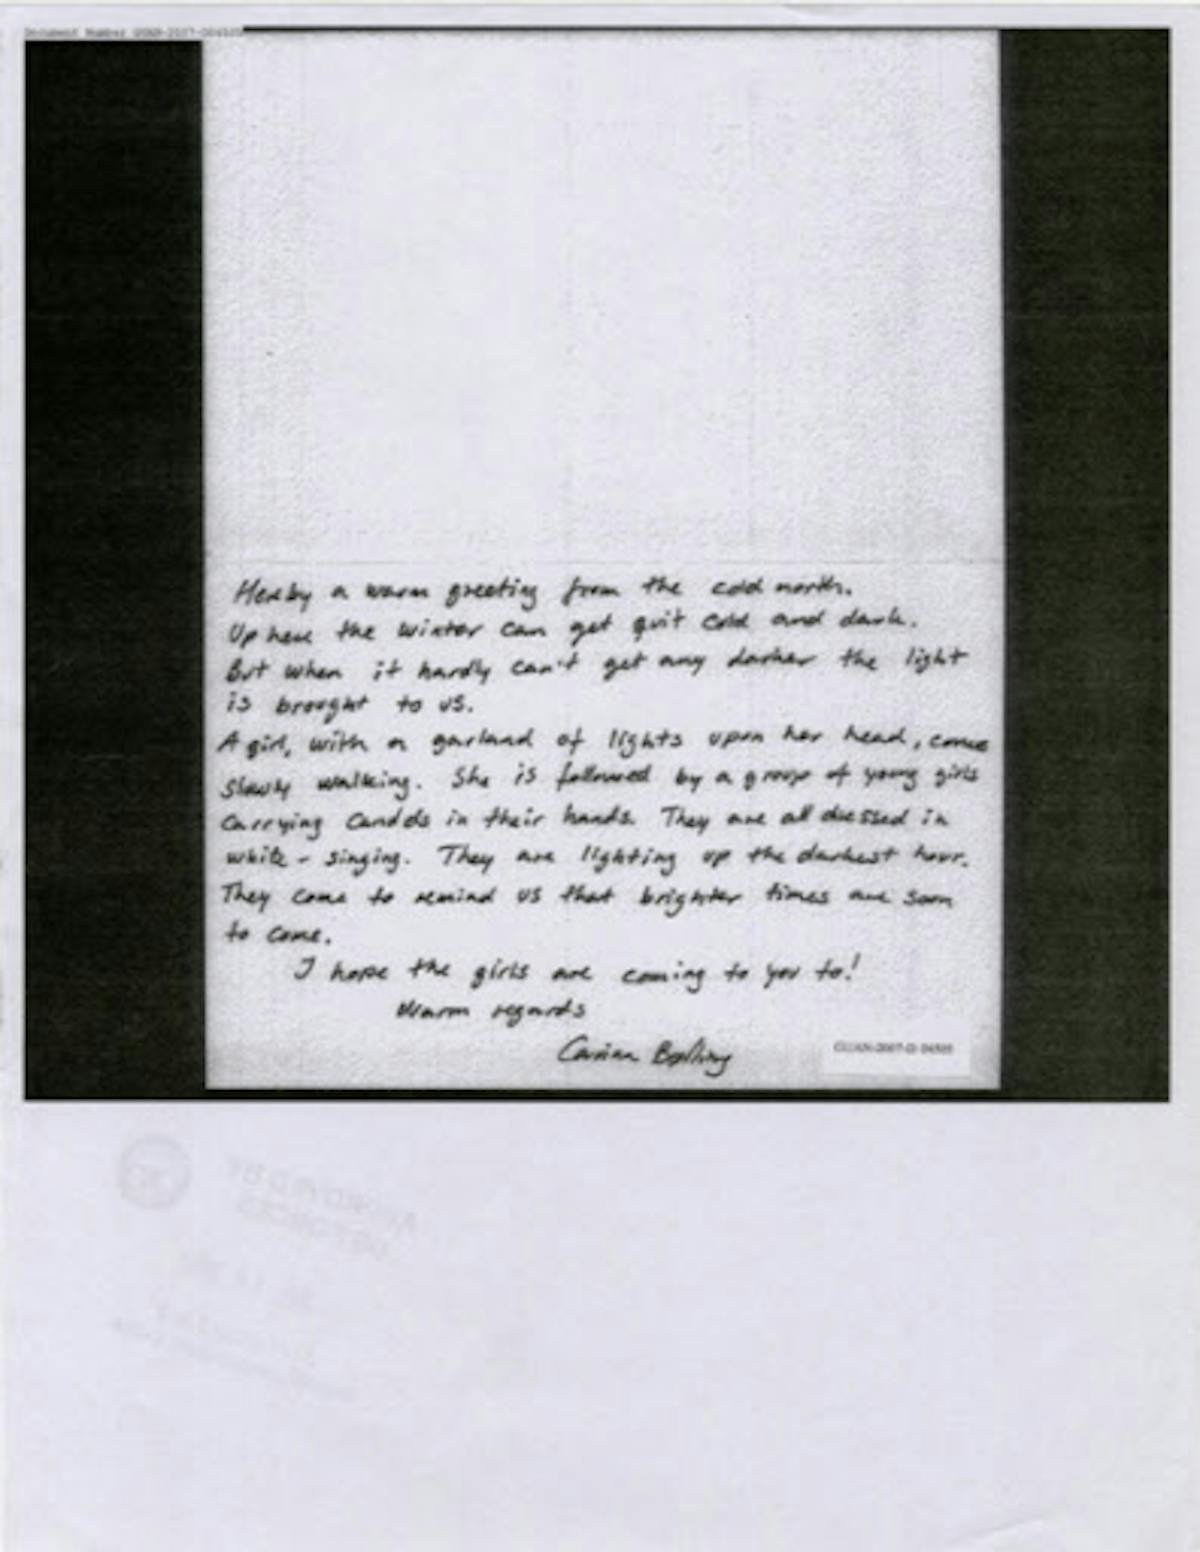 Document Number
Hereby a warm greeting from the cold north.
Up here the winter can get quit cold and dark.
But when it hardly can't get any darker the light
is brought to us.
A girl, with a garland of lights upon her head, come
slowly walking. She is followed by a group of young girls
carrying candels in their hands. They are all dressed in
white - singing. They are lighting up the darkest hour.
They come to remind us that brighter times are soon
to come.
I hope the girls are coming to you to!
Warm regards
Carina
APPROVED BY
US FORCES